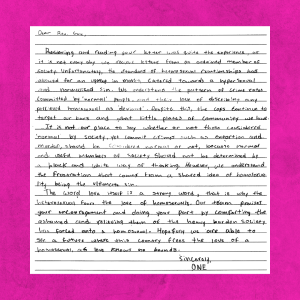 Dear Rev. Gene,
Receiving and reading your letter was quite the experience, as
it is not every day we receive letters from an ordained member of
society. Unfortunately, the standards of heterosexual relationships has
allowed for an uprise in media catered towards a hypersexual
and normalised sin. We understand the pattern of crime rates
committed by normal people, and their lack of observing may
perceived themselves as deviant. Despite this, the cops continue to
target our bars and what little places of community we have
It is not our place to say whether or not those considered
'normal' by society, yet commit crimes such as extortion and
murder, should be considered normal or not, because normal
and useful members of society should not be determined by
a black and white way of thinking. However, we understand
the frustration that comes from a shared idea of homosexua
lity being the ultimate sin.
The word love itself is a strong word, that is why the
heterosexual fears the love of homosexuals. Our team promises
your encouragement and doing your part by comforting the
ashamed and relieving them of the heavy burden society
has forced onto a homosexual. Hopefully we are able to
see a future where this century frees the love of a
homosexual, as love knows no bounds.
Sincerely,
ONE